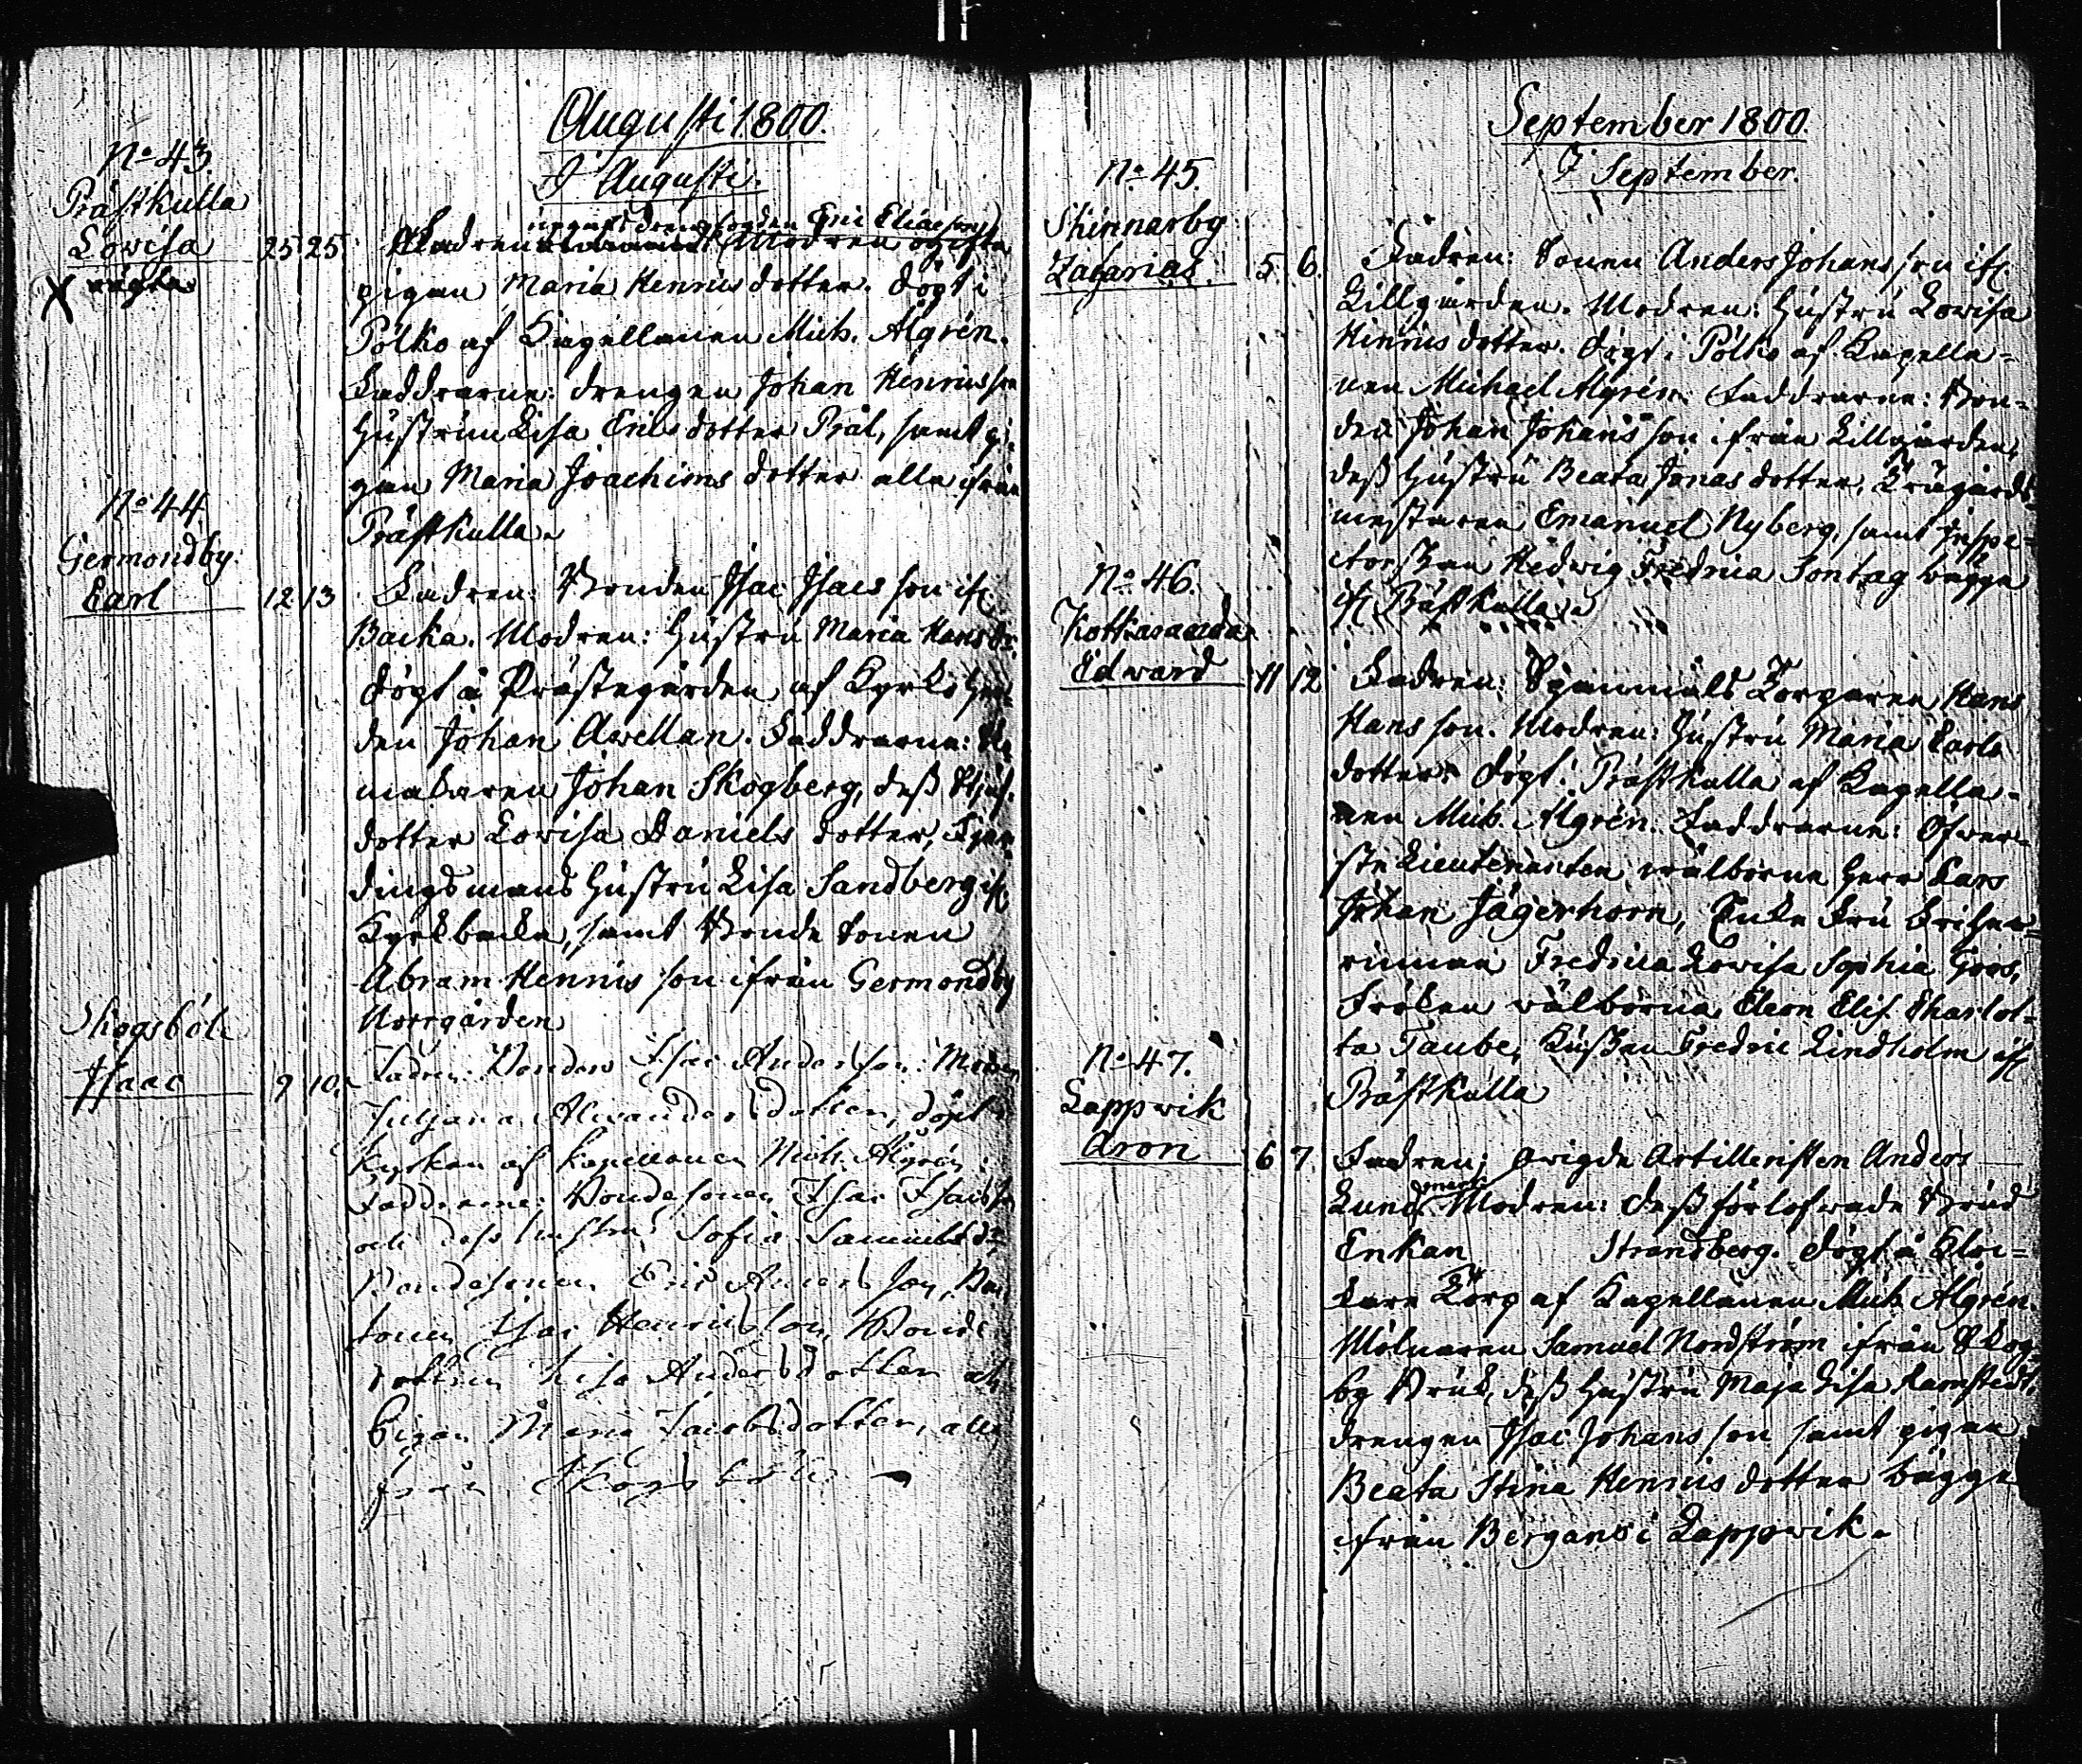 Augusti 1800.
I Augusti.
No 43.
Prästkulla
Lovisa 25 25
oägta
uppgafs drengkarlen Eric Eliaeson
Fadren Modren ogifta
pigan Maria Henricsdotter. Döpt i
Pölko af Capellanen Mich. Algrén.
Faddrarne: drengen Johan Henricsson
Hustrun Lisa Ericsdotter Präl, samt pi-
gan Maria Joachimsdotter alla ifrån
Prästkulla.
No 44
Germondby.
Carl 12 13
Fadren: Bonden Isac Isacs son if.
Backa. Modren: Hustru Maria Hansdr.
Döpt å Prästegården af Kyrkoher-
den Johan Avellan. Faddrarne:
makaren Johan Skogberg, dess
dotter Lovisa Daniels dotter, Fjer-
dingsmans Hustru Lisa Sandberg if.
Kyrkbacka, samt Bonde sonen
Abram Henrics son ifrån Germondby
Norrgården
Skogsböle
Isaac 9 10.
Fadren: Bonden Isac Anders son: Modren
Juljana Alexandersdotter, döpt i
Kyrkan af Kapellanen Mich. Algrén
Faddrarne; Bondesonen Isac Isacsson
och dess hustru Sofia Samuelsdr.
Bondesonen Eric Anders son, Bon-
sonen Isac Henricsson, Bonde
dottren Lisa Andersdotter och
Pigan Maria Jacobsdotter, alla
från Skogsböle
September 1800.
I September.
No 45.
Skinnarby
Zacharias. 5. 6.
Fadren: Sonen Anders Johans son if.
Lillgården. Modren: Hustru Lovisa
Hinrics dotter. Döpt i Pölko af Capella-
nen Michael Algrén. Faddrarne: Bon-
den Johan Johans son ifrån Lillgården,
dess Hustru Beata Jonas dotter, Trägårds-
mestaren Emanuel Nyberg, samt Inspe-
ctorskan Hedwig Fredrica Sontag bägge
if. Prästkulla.
No 46.
Kottkasanda
Edward 11 12
Fadren: Spanmåls Torparen Hans
Hans son. Modren: Hustru Maria Carls
dotter. Döpt i Prästkulla af Capella-
nen Mich. Algrén. Faddrarne: Öfwer-
ste Lieutenanten wälborne Herr Lars
Johan Jägerhorn, Enke Fru Friher-
rinnan Fredrica Lovisa Sophia Groos,
Fröken wälborna Eleon Elis. Charlot-
ta Taube, Kusken Fredric Lindholm if.
Prästkulla
No 47.
Lappwik
Aron 6 7.
Fadren; owigde Artilleristen Anders
Lundmark Modren: Dess förlofwade Brud
Enkan Strandberg. Döpt å Kloc-
kare Torp af Capellanen Mich. Algrén.
Mölnaren Samuel Nordström ifrån Skog-
by Bruk, dess Hustru Maja Lisa Ramstedt,
drengen Isac Johans son samt pigan
Beata Stina Henrics dotter bägge
ifrån Bergans i Lappwik.